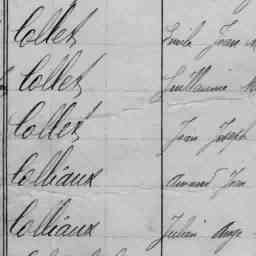 Collet Emile Jean M
Collet Guillaume M
Collet Jean Joseph
Colliaux Amand Jean
Colliaux Julien Ange